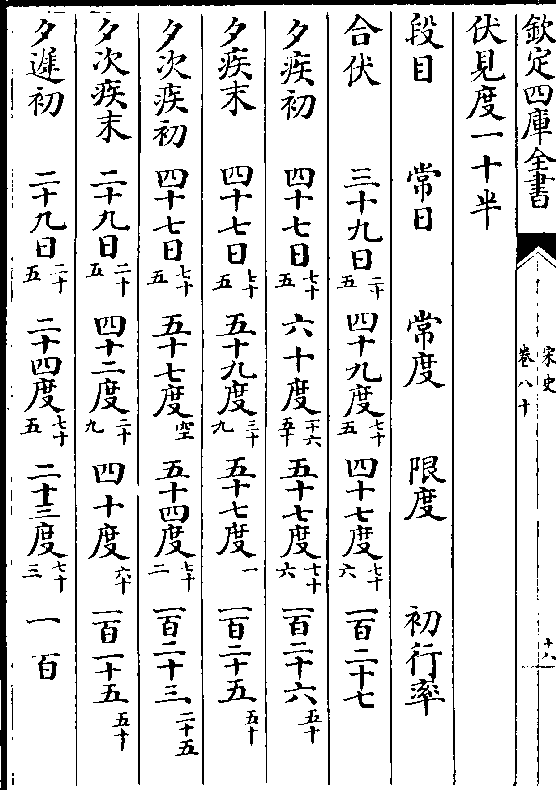 欽定四庫全書
宋史
卷八十
十八
伏見度一十半
段目 常日 常度 限度 初行率
合伏 三十九日二十五 四十九度七十五 四十七度七十六 一百二十七
夕疾初 四十七日七十五 六十度一十六五十 五十七度七十六 一百二十六五十
夕疾末 四十七日七十五 五十九度三十九 五十七度一 一百二十五五十
夕次疾初 四十七日七十五 五十七度空 五十四度七十二 一百二十三二十五
夕次疾末 二十九日二十五 四十二度二十九 四十度六十 一百一十五五十
夕遲初 二十九日二十五 二十四度七十五 二十三度七十三 一百